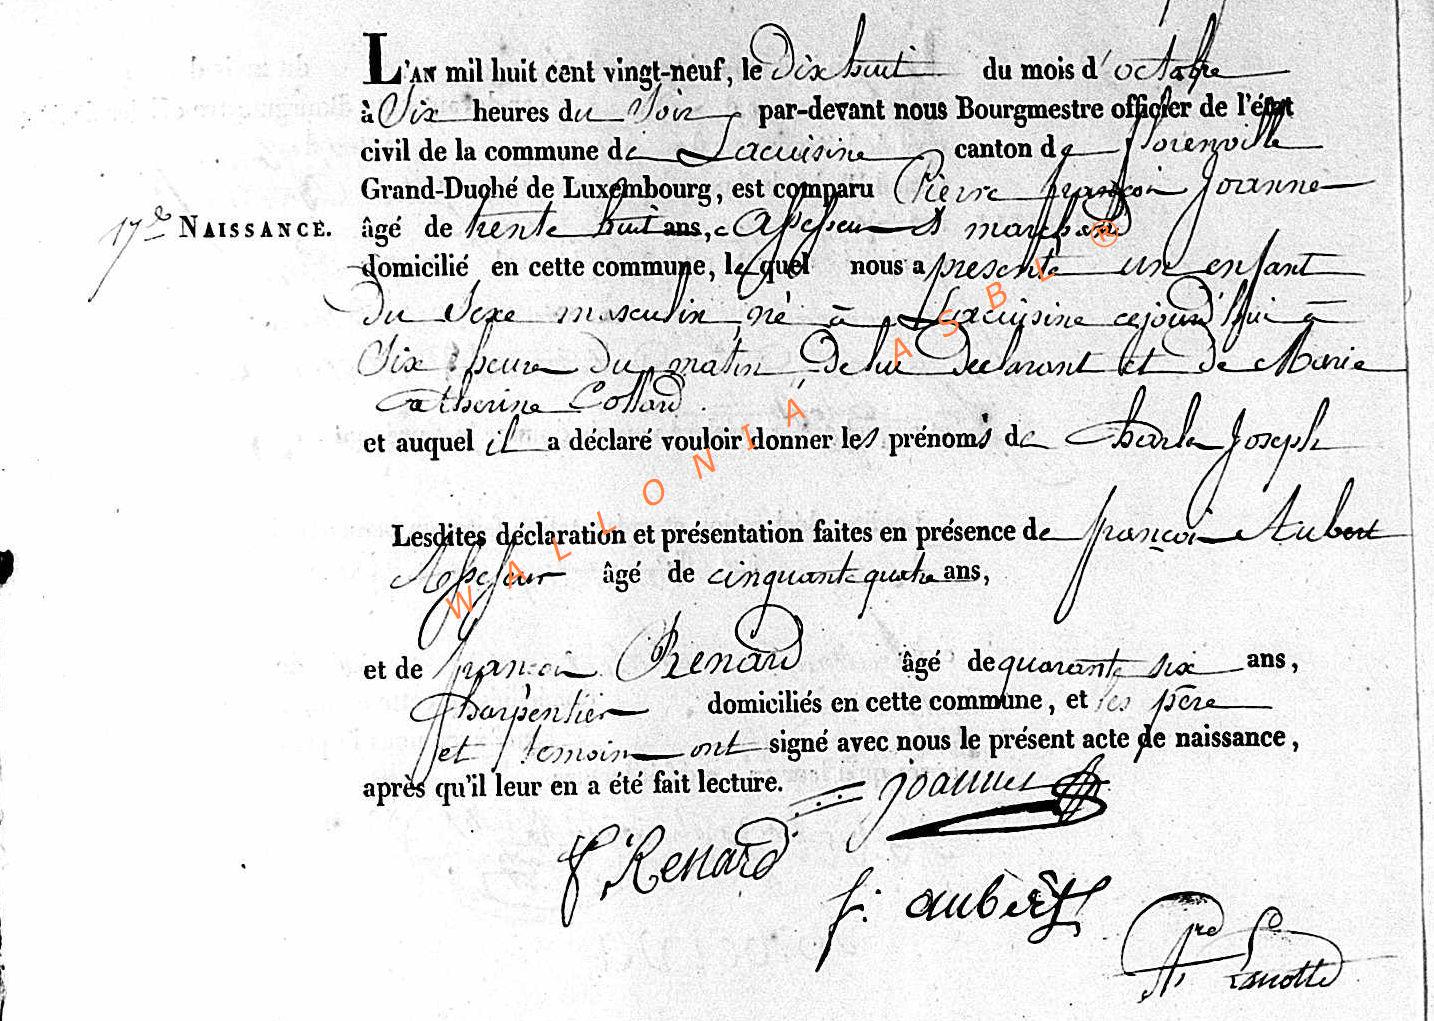 L'AN mil huit cent vingt-neuf, le dix huit du mois d'octobre
à Six heures du Soir par-devant nous Bourgmestre officier de l'état
civil de la commune de Lacuisine canton de florenville
Grand-Duché de Luxembourg, est comparu Pierre françois Joannes
17e NAISSANCE. âgé de trente huit ans, assesseur et marchand
domicilié en cette commune, lequel nous a presenté un enfant
du Sexe masculin né à Lacuisine cejourd'hui à
Six heure du matin de lui declarant et de Marie
Catherine Collard.
et auquel il a déclaré vouloir donner les prénoms de Charle Joseph
Lesdites déclaration et présentation faites en présence de françois Aubert
Assesseur âgé de cinquante quatre ans,
et de françois Renard âgé de quarante six ans,
Charpentier domiciliés en cette commune, et les père
et temoin ont signé avec nous le présent acte de naissance,
après qu'il leur en a été fait lecture. joannes
f. Renard
f: aubert
Pre Lamotte
WALLONIA ASBL ®